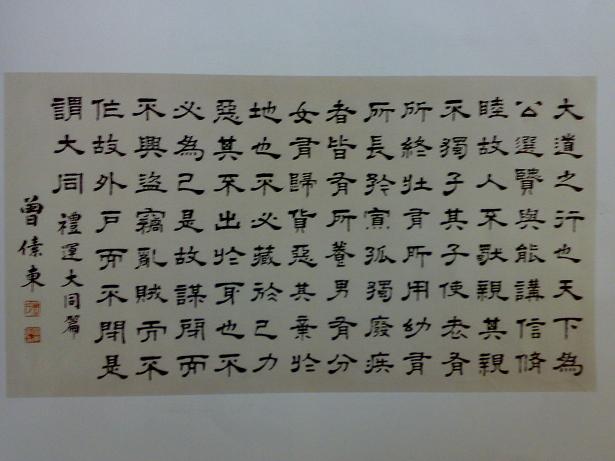 大道之行也天下為
公選賢與能講信脩
睦故人不獨親其親
不獨子其子使老有
所終壯有所用幼有
所長矜寡孤獨廢疾
者皆有所養男有分
女有歸貨惡其棄於
地也不必藏於己力
惡其不出於身也不
必為己是故謀閉而
不興盜竊亂賊而不
作故外戶而不閉是
謂大同
禮運大同篇
曾傃東